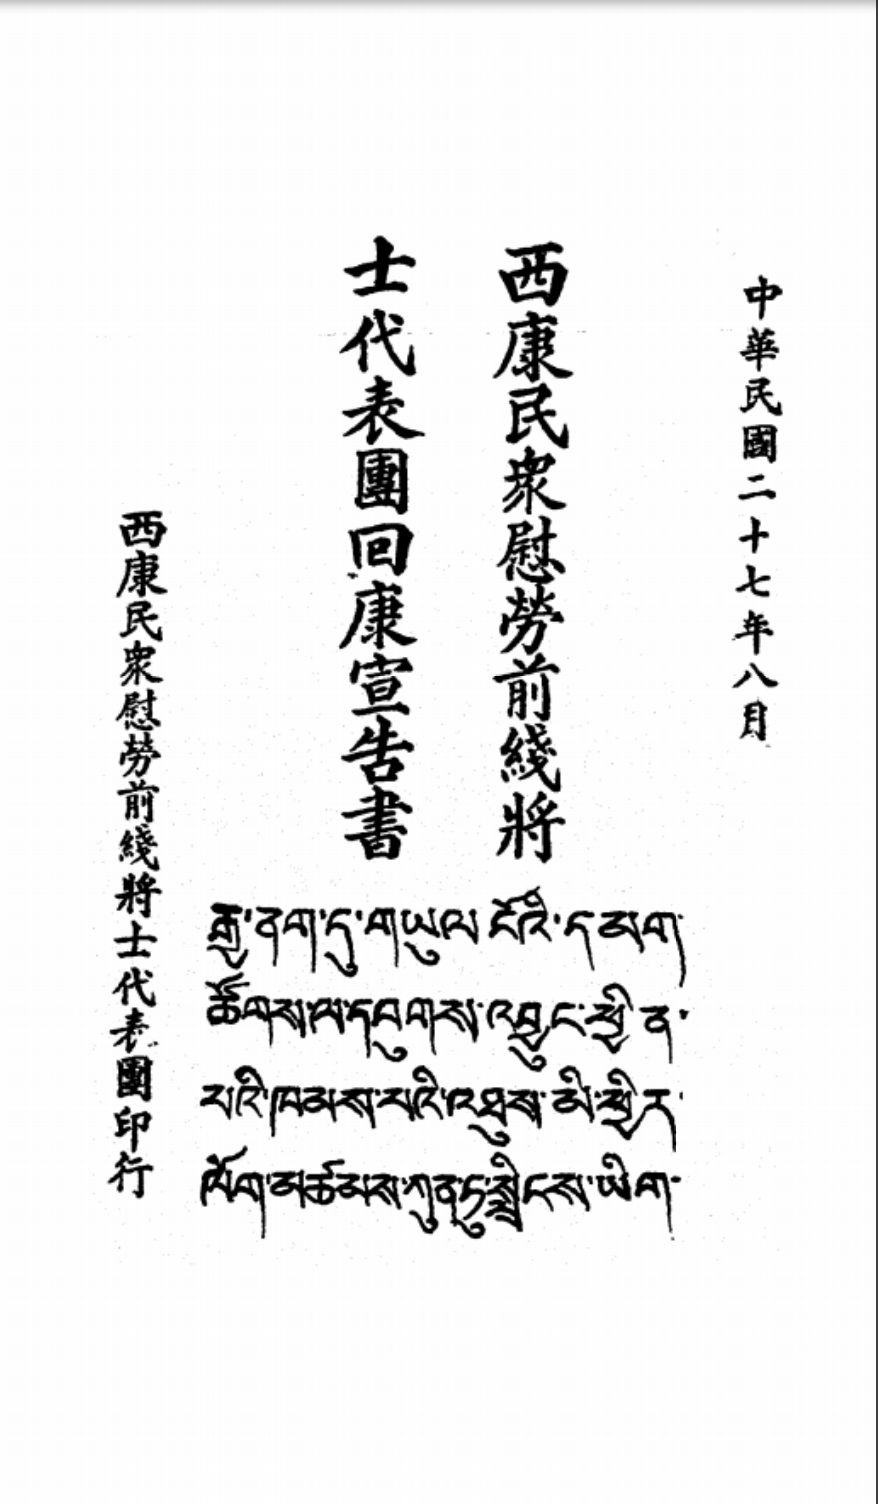 中華民國二十七年八月
西康民衆慰勞前綫將
士代表團回康宣告書
རྒྱ་ནག་དུ་གཡུལ་ངོའི་དམག་
ཚོགས་ལ་དབུགས་འབྱུང་ཕྱི་ན་
པའི་ཁམས་པའི་འཐུས་མི་ཕྱིར་
ལོག་མཚམས་ཀུན་ཏུ་སྒྲེངས་ཡིག་
西康民衆慰勞前綫將士代表團印行